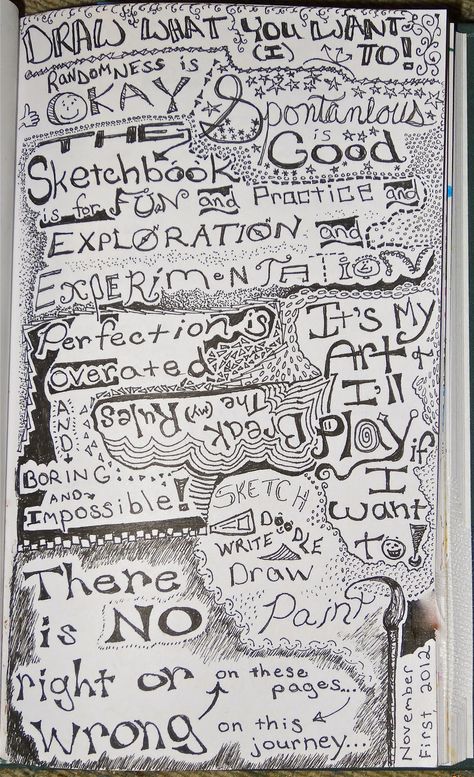 DRAW WHAT YOU WANT
(I) TO!
RANDOMNESS is
OKAY
Spontaneous
is
Good
THE
Sketchbook
is for FUN and Practice and
EXPLORATION and
EXPERIMENTATION
Perfection is
overated
AND
BORING
AND
Impossible!
Break
The (my) Rules
It's My
Art &
I'll
Play if
I
want
to!
SKETCH
DOODLE
WRITE
Draw
Paint
There
is NO
right or
wrong
on these
pages...
on this
journey...
November
First, 2012